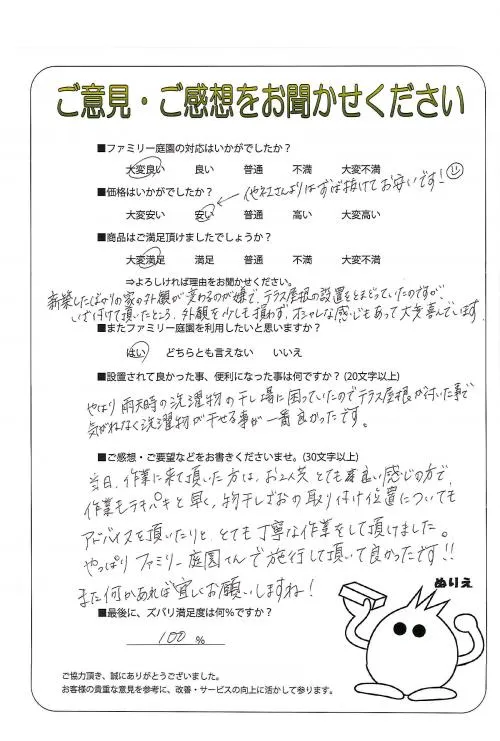 ご意見・ご感想をお聞かせください
■ファミリー庭園の対応はいかがでしたか？
大変良い 良い 普通 不満 大変不満
■価格はいかがでしたか？ ← 他社さんよりはずば抜けてお安いです！
大変安い 安い 普通 高い 大変高い
■商品はご満足頂けましたでしょうか？
大変満足 満足 普通 不満 大変不満
⇒よろしければ理由をお聞かせください。
新築したばかりの家の外観が変わるのが嫌で、テラス屋根の設置をとまどっていたのですが、
いざ付けて頂いたところ、外観を少しも損わず、オシャレな感じもあって大変喜んでいます。
■またファミリー庭園を利用したいと思いますか？
はい どちらとも言えない いいえ
■設置されて良かった事、便利になった事は何ですか？（20文字以上）
やはり雨天時の洗濯物の干し場に困っていたのでテラス屋根が付いた事で
気がねなく洗濯物が干せる事が一番良かったです。
■ご感想・ご要望などをお書きくださいませ。（30文字以上）
当日、作業に来て頂いた方は、お2人共とても感じの方で、
作業もテキパキと早く、物干しざおの取り付け位置についても
アドバイスを頂いたりと、とても丁寧な作業をして頂けました。
やっぱりファミリー庭園さんで施行して頂いて良かったです!!
また何かあれば宜しくお願いしますね！
ぬりえ
■最後に、ズバリ満足度は何％ですか？
100 ％
ご協力頂き、誠にありがとうございました。
お客様の貴重な意見を参考に、改善・サービスの向上に活かして参ります。